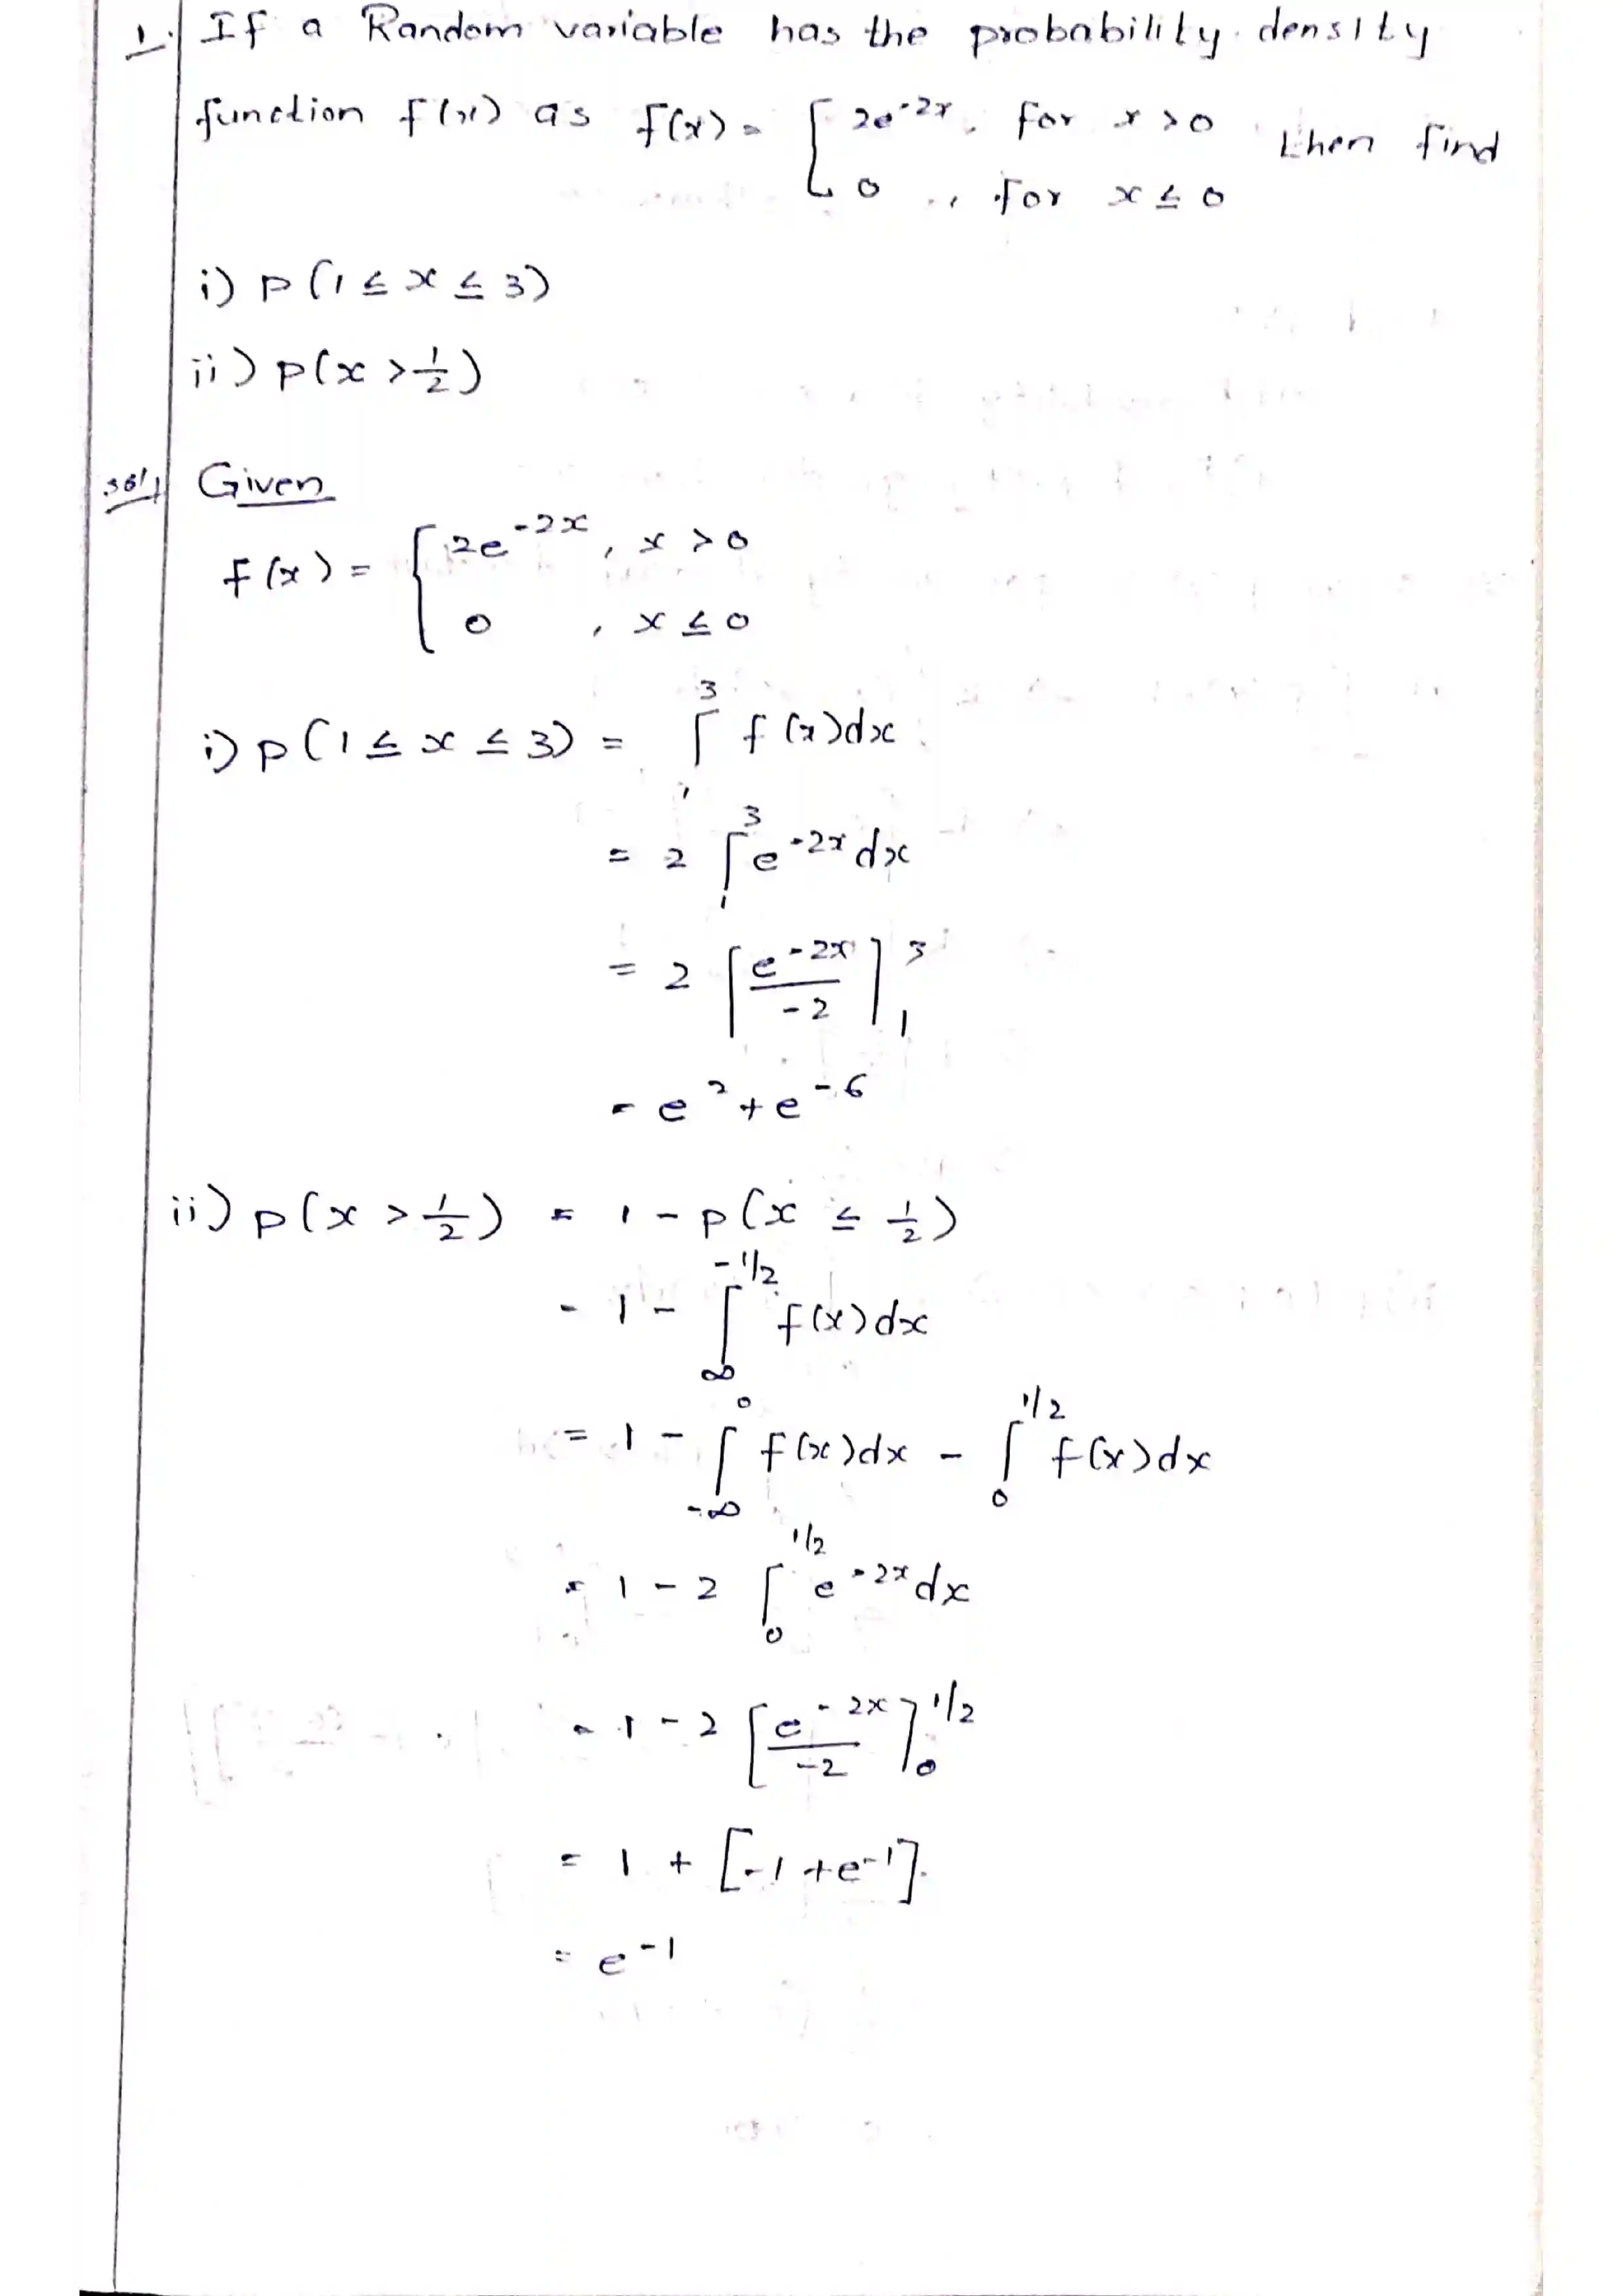 1. If a Random variable has the probability density
function f(x) as f(x) = { 2e^-2x, for x > 0
0 , for x ≤ 0 then find
i) P(1 ≤ x ≤ 3)
ii) P(x > 1/2)
Sol/ Given
f(x) = { 2e^-2x, x > 0
0 , x ≤ 0
i) P(1 ≤ x ≤ 3) = ∫_1^3 f(x)dx
= 2 ∫_1^3 e^-2x dx
= 2 [e^-2x / -2]_1^3
= e^2 + e^-6
ii) P(x > 1/2) = 1 - P(x ≤ 1/2)
= 1 - ∫_∞^-1/2 f(x)dx
= 1 - ∫_-∞^0 f(x)dx - ∫_0^1/2 f(x)dx
= 1 - 2 ∫_0^1/2 e^-2x dx
= 1 - 2 [e^-2x / -2]_0^1/2
= 1 + [-1 + e^-1].
= e^-1